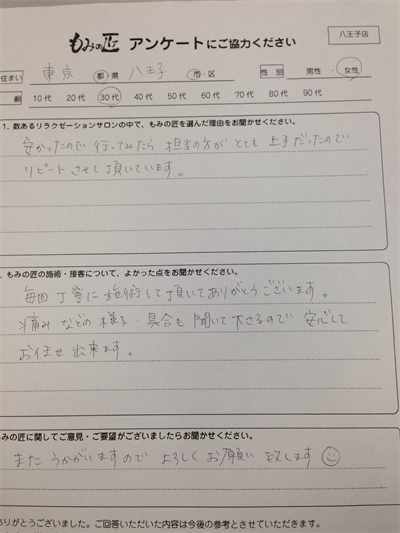 八王子店
もみの匠 アンケートにご協力ください
住まい 東京 都・県 八王子 市・区 性別 男性・女性
齢 10代 20代 30代 40代 50代 60代 70代 80代 90代
1. 数あるリラクゼーションサロンの中で、もみの匠を選んだ理由をお聞かせください。
安かったので行ってみたら担当の方がとても上手だったので
リピートさせて頂いています。
. もみの匠の施術・接客について、よかった点をお聞かせください。
毎回丁寧に施術して頂いてありがとうございます。
痛みなどの様子・具合も聞いて下さるので安心して
お任せ出来ます。
もみの匠に関してご意見・ご要望がございましたらお聞かせください。
またうかがいますのでよろしくお願い致します
ありがとうございました。ご回答いただいた内容は今後の参考とさせていただきます。